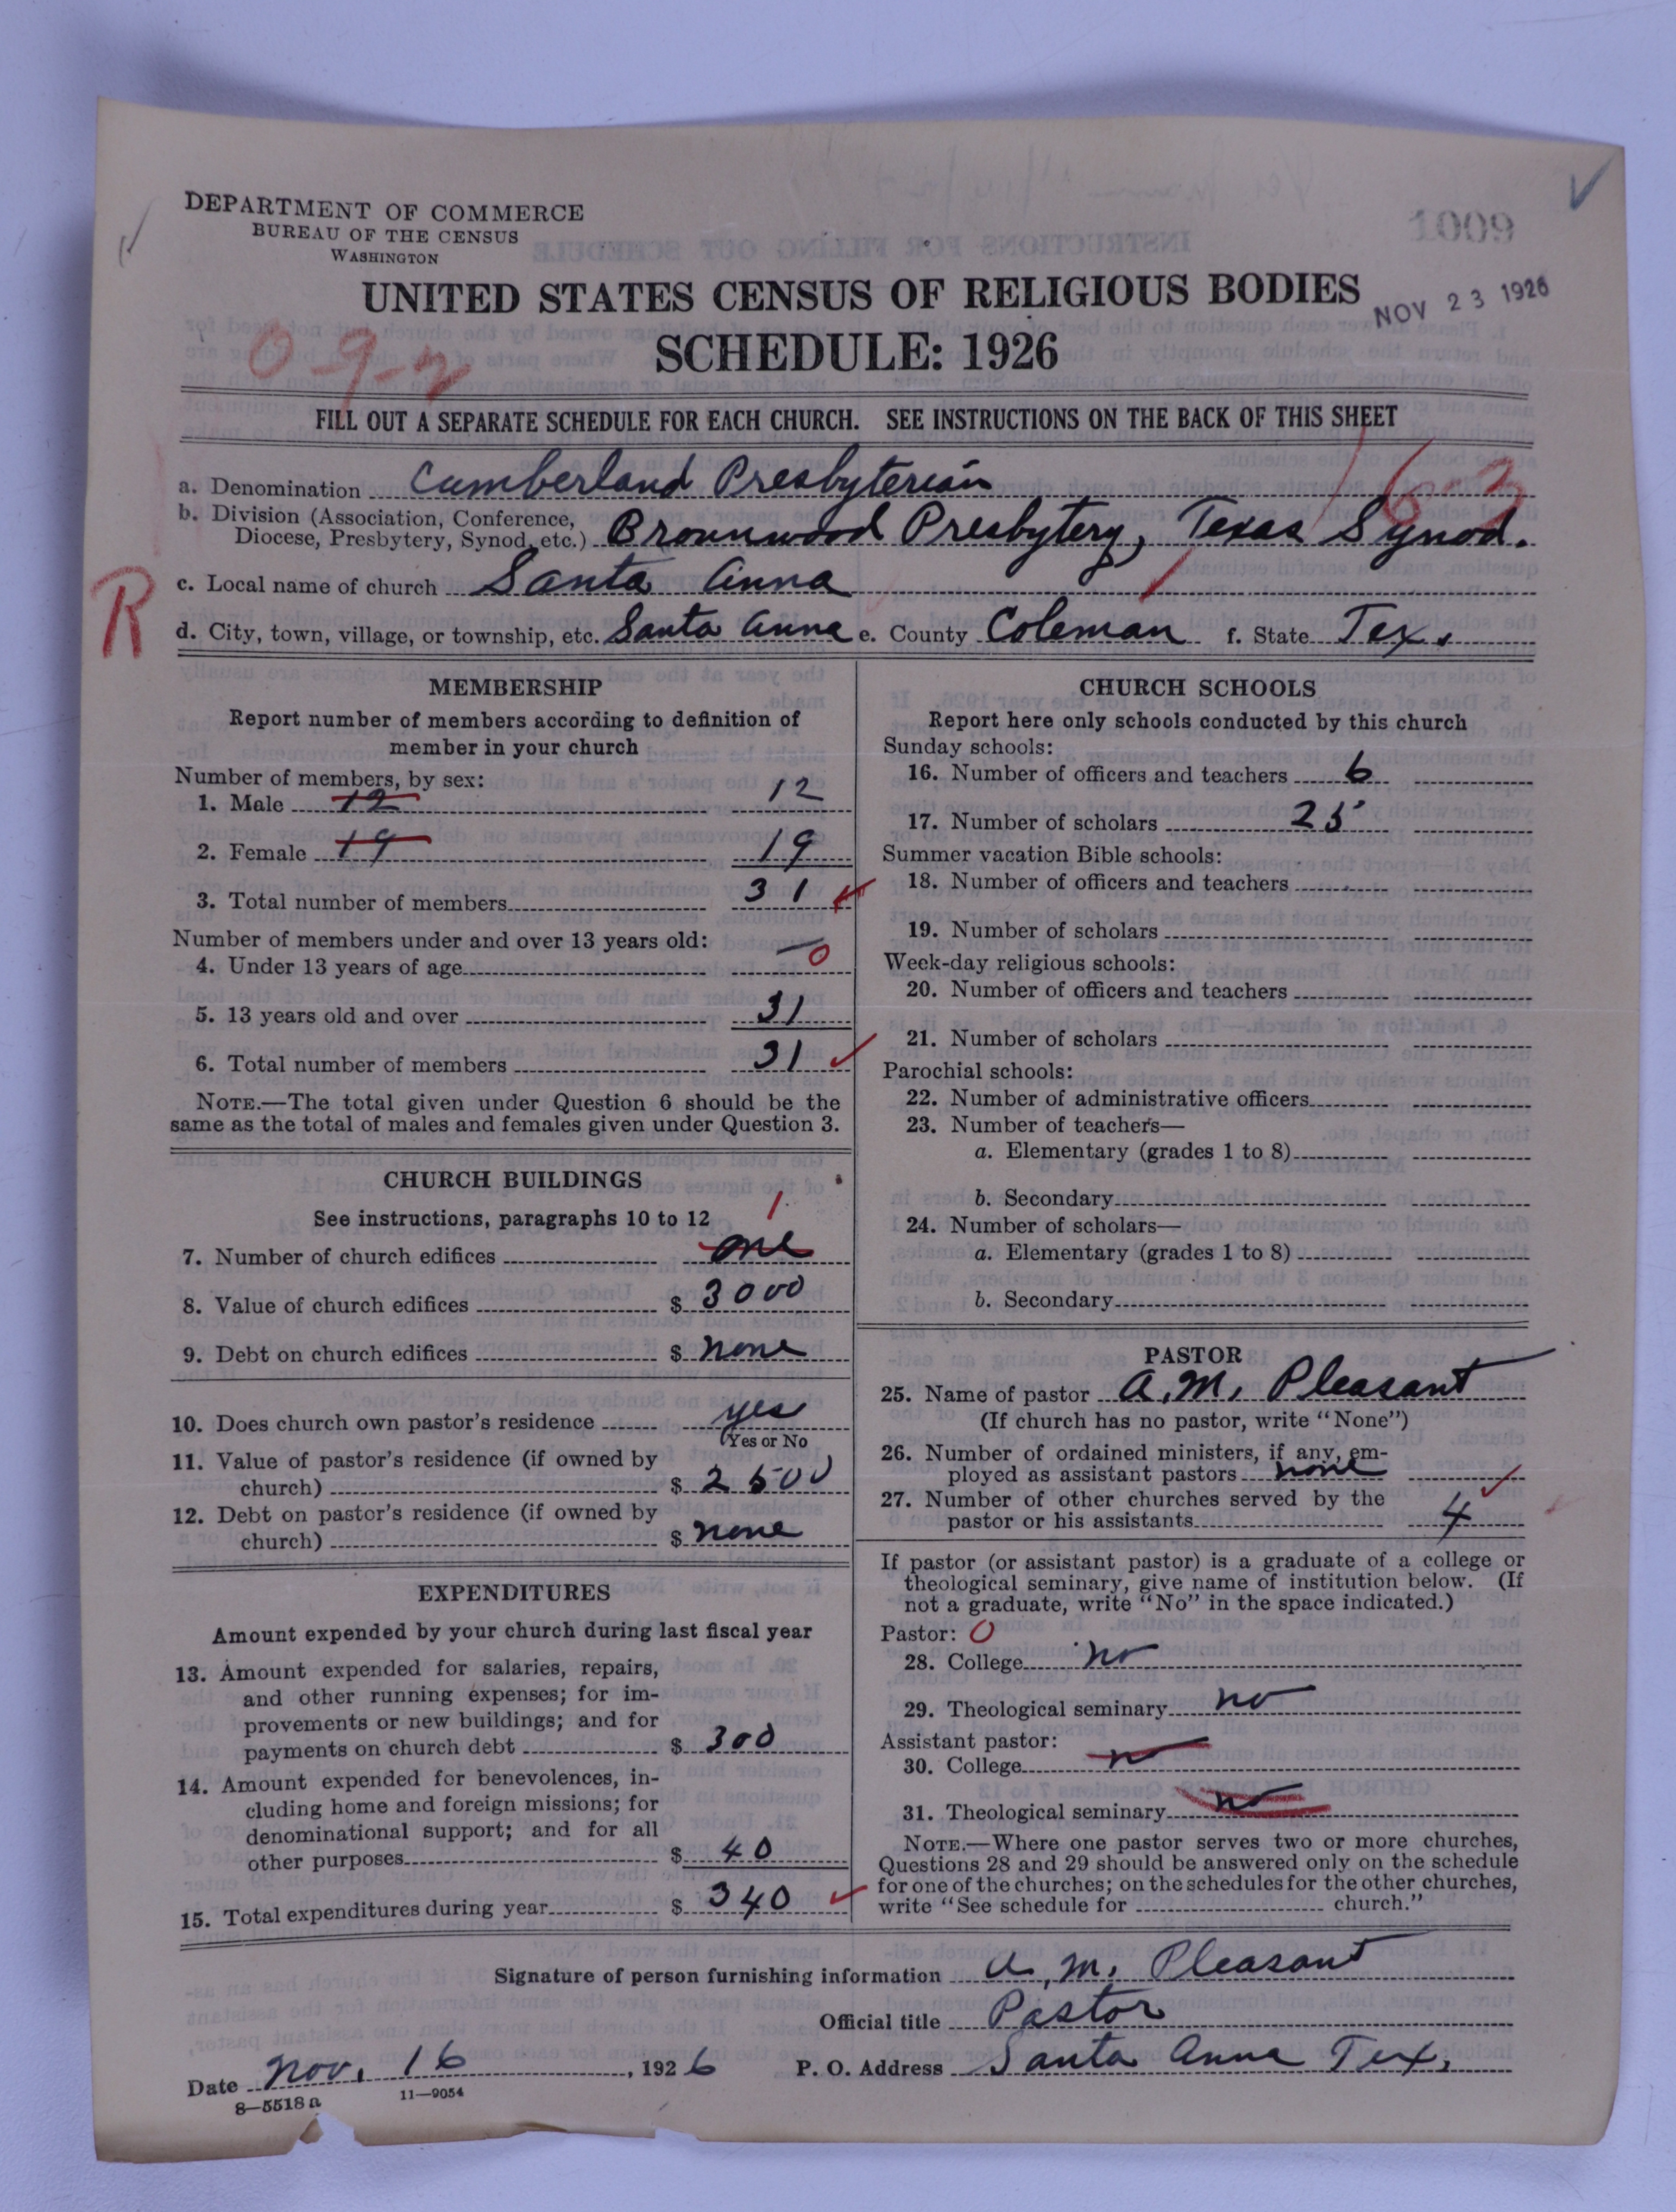 DEPARTMENT OF COMMERCE
BUREAU OF THE CENSUS
WASHINGTON
1009
UNITED STATES CENSUS OF RELIGIOUS BODIES
NOV 23 1926
SCHEDULE: 1926
0-9-2
FILL OUT A SEPARATE SCHEDULE FOR EACH CHURCH. SEE INSTRUCTIONS ON THE BACK OF THIS SHEET
16-3
a. Denomination Cumberland Presbyterian
b. Division (Association, Conference,
Diocese, Presbytery, Synod, etc.) Brownwood Presbytery, Texas Synod.
R
c. Local name of church Santa Anna
d. City, town, village, or township, etc. Santa Anna e. County Coleman f. State Tex.
MEMBERSHIP
Report number of members according to definition of
member in your church
Number of members, by sex:
1. Male 12 12
2. Female 19 19
3. Total number of members 31
Number of members under and over 13 years old:
4. Under 13 years of age — 0
5. 13 years old and over 31
6. Total number of members 31
NOTE.—The total given under Question 6 should be the
same as the total of males and females given under Question 3.
CHURCH BUILDINGS
See instructions, paragraphs 10 to 12
1
7. Number of church edifices one
8. Value of church edifices $ 3000
9. Debt on church edifices $ none
10. Does church own pastor's residence yes
(Yes or No
11. Value of pastor's residence (if owned by
church) $ 2500
12. Debt on pastor's residence (if owned by
church) $ none
EXPENDITURES
Amount expended by your church during last fiscal year
13. Amount expended for salaries, repairs,
and other running expenses; for im-
provements or new buildings; and for
payments on church debt $ 300
14. Amount expended for benevolences, in-
cluding home and foreign missions; for
denominational support; and for all
other purposes $ 40
15. Total expenditures during year $ 340
CHURCH SCHOOLS
Report here only schools conducted by this church
Sunday schools:
16. Number of officers and teachers 6
17. Number of scholars 25
Summer vacation Bible schools:
18. Number of officers and teachers
19. Number of scholars
Week-day religious schools:
20. Number of officers and teachers
21. Number of scholars
Parochial schools:
22. Number of administrative officers
23. Number of teachers—
a. Elementary (grades 1 to 8)
b. Secondary
24. Number of scholars—
a. Elementary (grades 1 to 8)
b. Secondary
PASTOR
25. Name of pastor A. M. Pleasant
(If church has no pastor, write "None")
26. Number of ordained ministers, if any, em-
ployed as assistant pastors none
27. Number of other churches served by the
pastor or his assistants 4
If pastor (or assistant pastor) is a graduate of a college or
theological seminary, give name of institution below. (If
not a graduate, write "No" in the space indicated.)
Pastor: 0
28. College no
29. Theological seminary no
Assistant pastor:
30. College no
31. Theological seminary no
NOTE.—Where one pastor serves two or more churches,
Questions 28 and 29 should be answered only on the schedule
for one of the churches; on the schedules for the other churches,
write "See schedule for church."
Signature of person furnishing information A. M. Pleasant
Official title Pastor
Date Nov. 16, 1926 P. O. Address Santa Anna Tex.
8—5518 a 11—9054